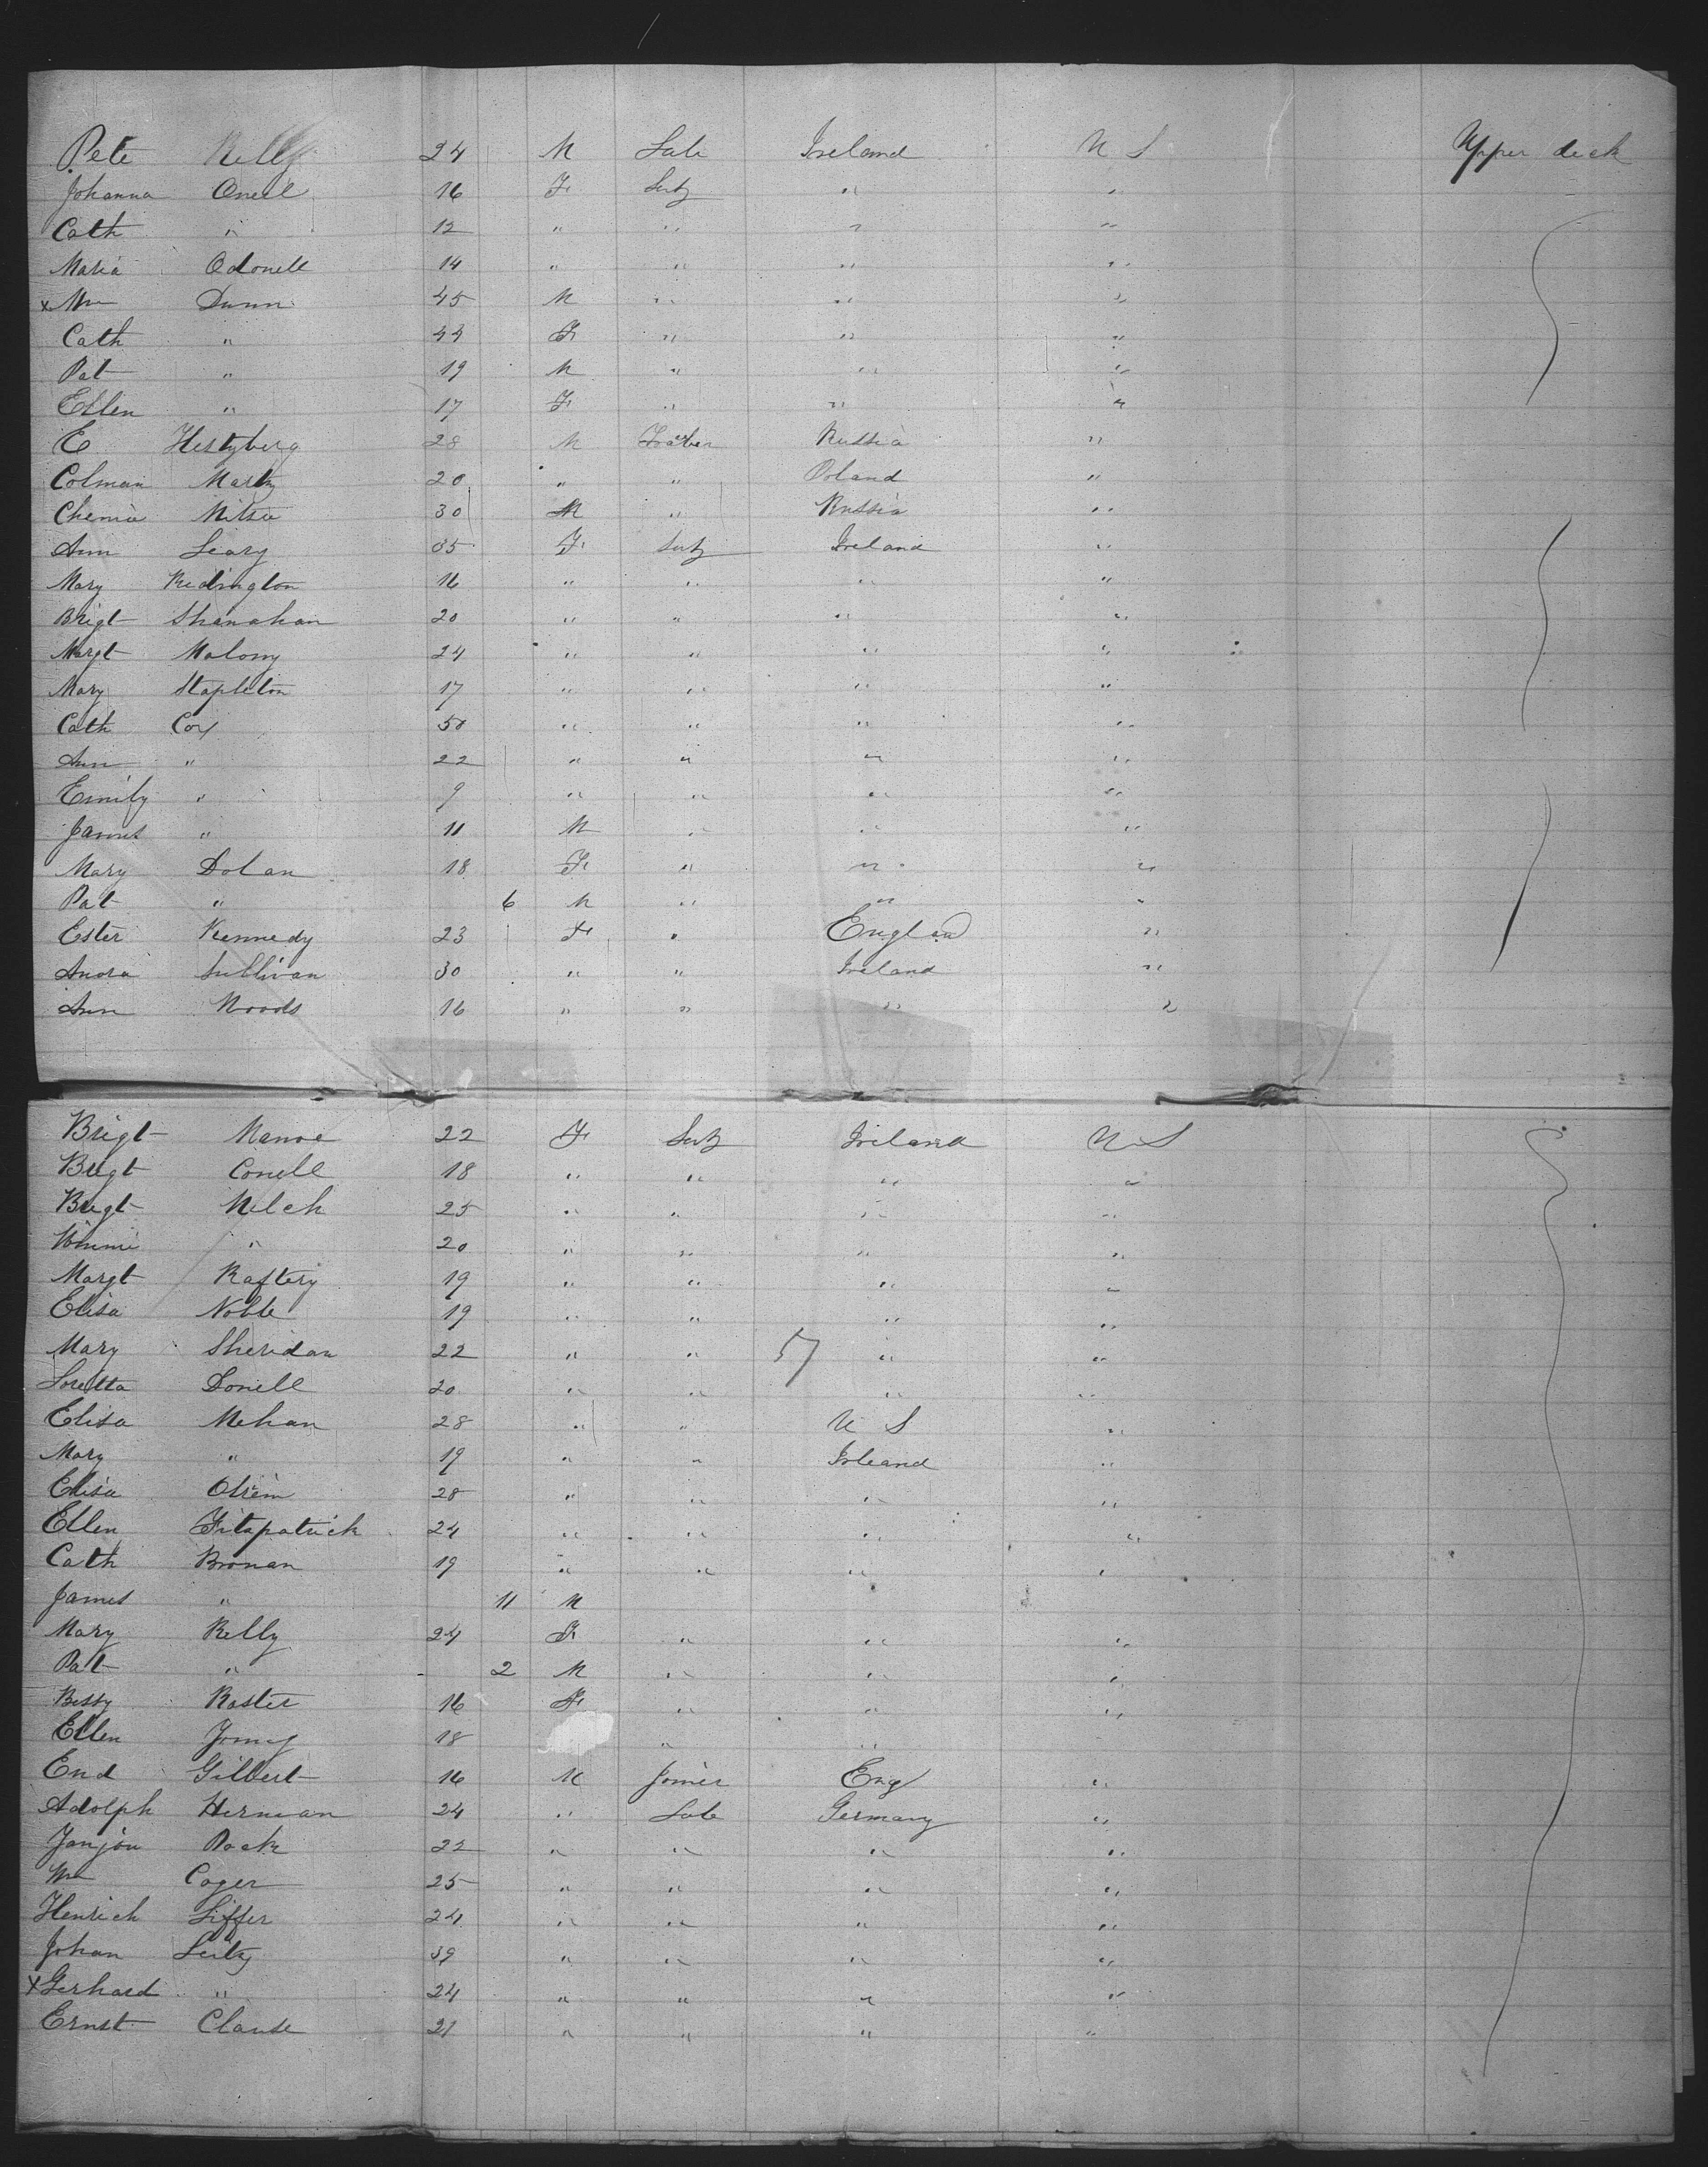 Pete Kelly 24 M Lab Ireland U S Upper deck
Johanna Oneil 16 F Sert " "
Cath " 12 " " " "
Maria Odonell 14 " " " "
x Wm Dunn 45 M " " "
Cath " 44 F " " "
Pat " 19 M " " "
Ellen " 17 F " " "
E 28 M Russia "
Colman 20 " " "
30 M " Russia "
Ann Leary 35 F Sert Ireland "
Mary Redington 16 " " " "
Brigt Shanahan 20 " " " "
Margt Malony 24 " " " "
Mary Stapleton 17 " " " "
Cath Cox 50 " " " "
Ann " 22 " " " "
Emily " 9 " " " "
James " 11 M " " "
Mary Dolan 18 F " " "
Pat " 6 M " " "
Ester Kennedy 23 F " England "
Sullivan 30 " " Ireland "
Ann Woods 16 " " " "
Brigt 22 F Sert Ireland U S
Brigt Conell 18 " " " "
Brigt Welch 25 " " " "
Winnie " 20 " " " "
Margt Raftery 19 " " " "
Elisa Noble 19 " " " "
Mary Sheridan 22 " " 57 " "
Loretta Donell 20 " " " "
Elisa Mehan 28 " " U S "
Mary " 19 " " Irleand "
Elisa 28 " " " "
Ellen Fitzpatrick 24 " " " "
Cath Bronan 19 " " " "
James " 11 M
Mary Kelly 24 F " " "
Pat " 2 M " " "
Bessy 16 F " " "
Ellen 18 " "
Gilbert 16 M Joiner Eng "
Adolph Herman 24 " Lab Germany "
22 " " " "
Wm Coger 25 " " " "
Henrich Siffer 24 " " " "
Johan Seitz 39 " " " "
x Gerhard " 24 " " " "
Ernst Clause 21 " " " "